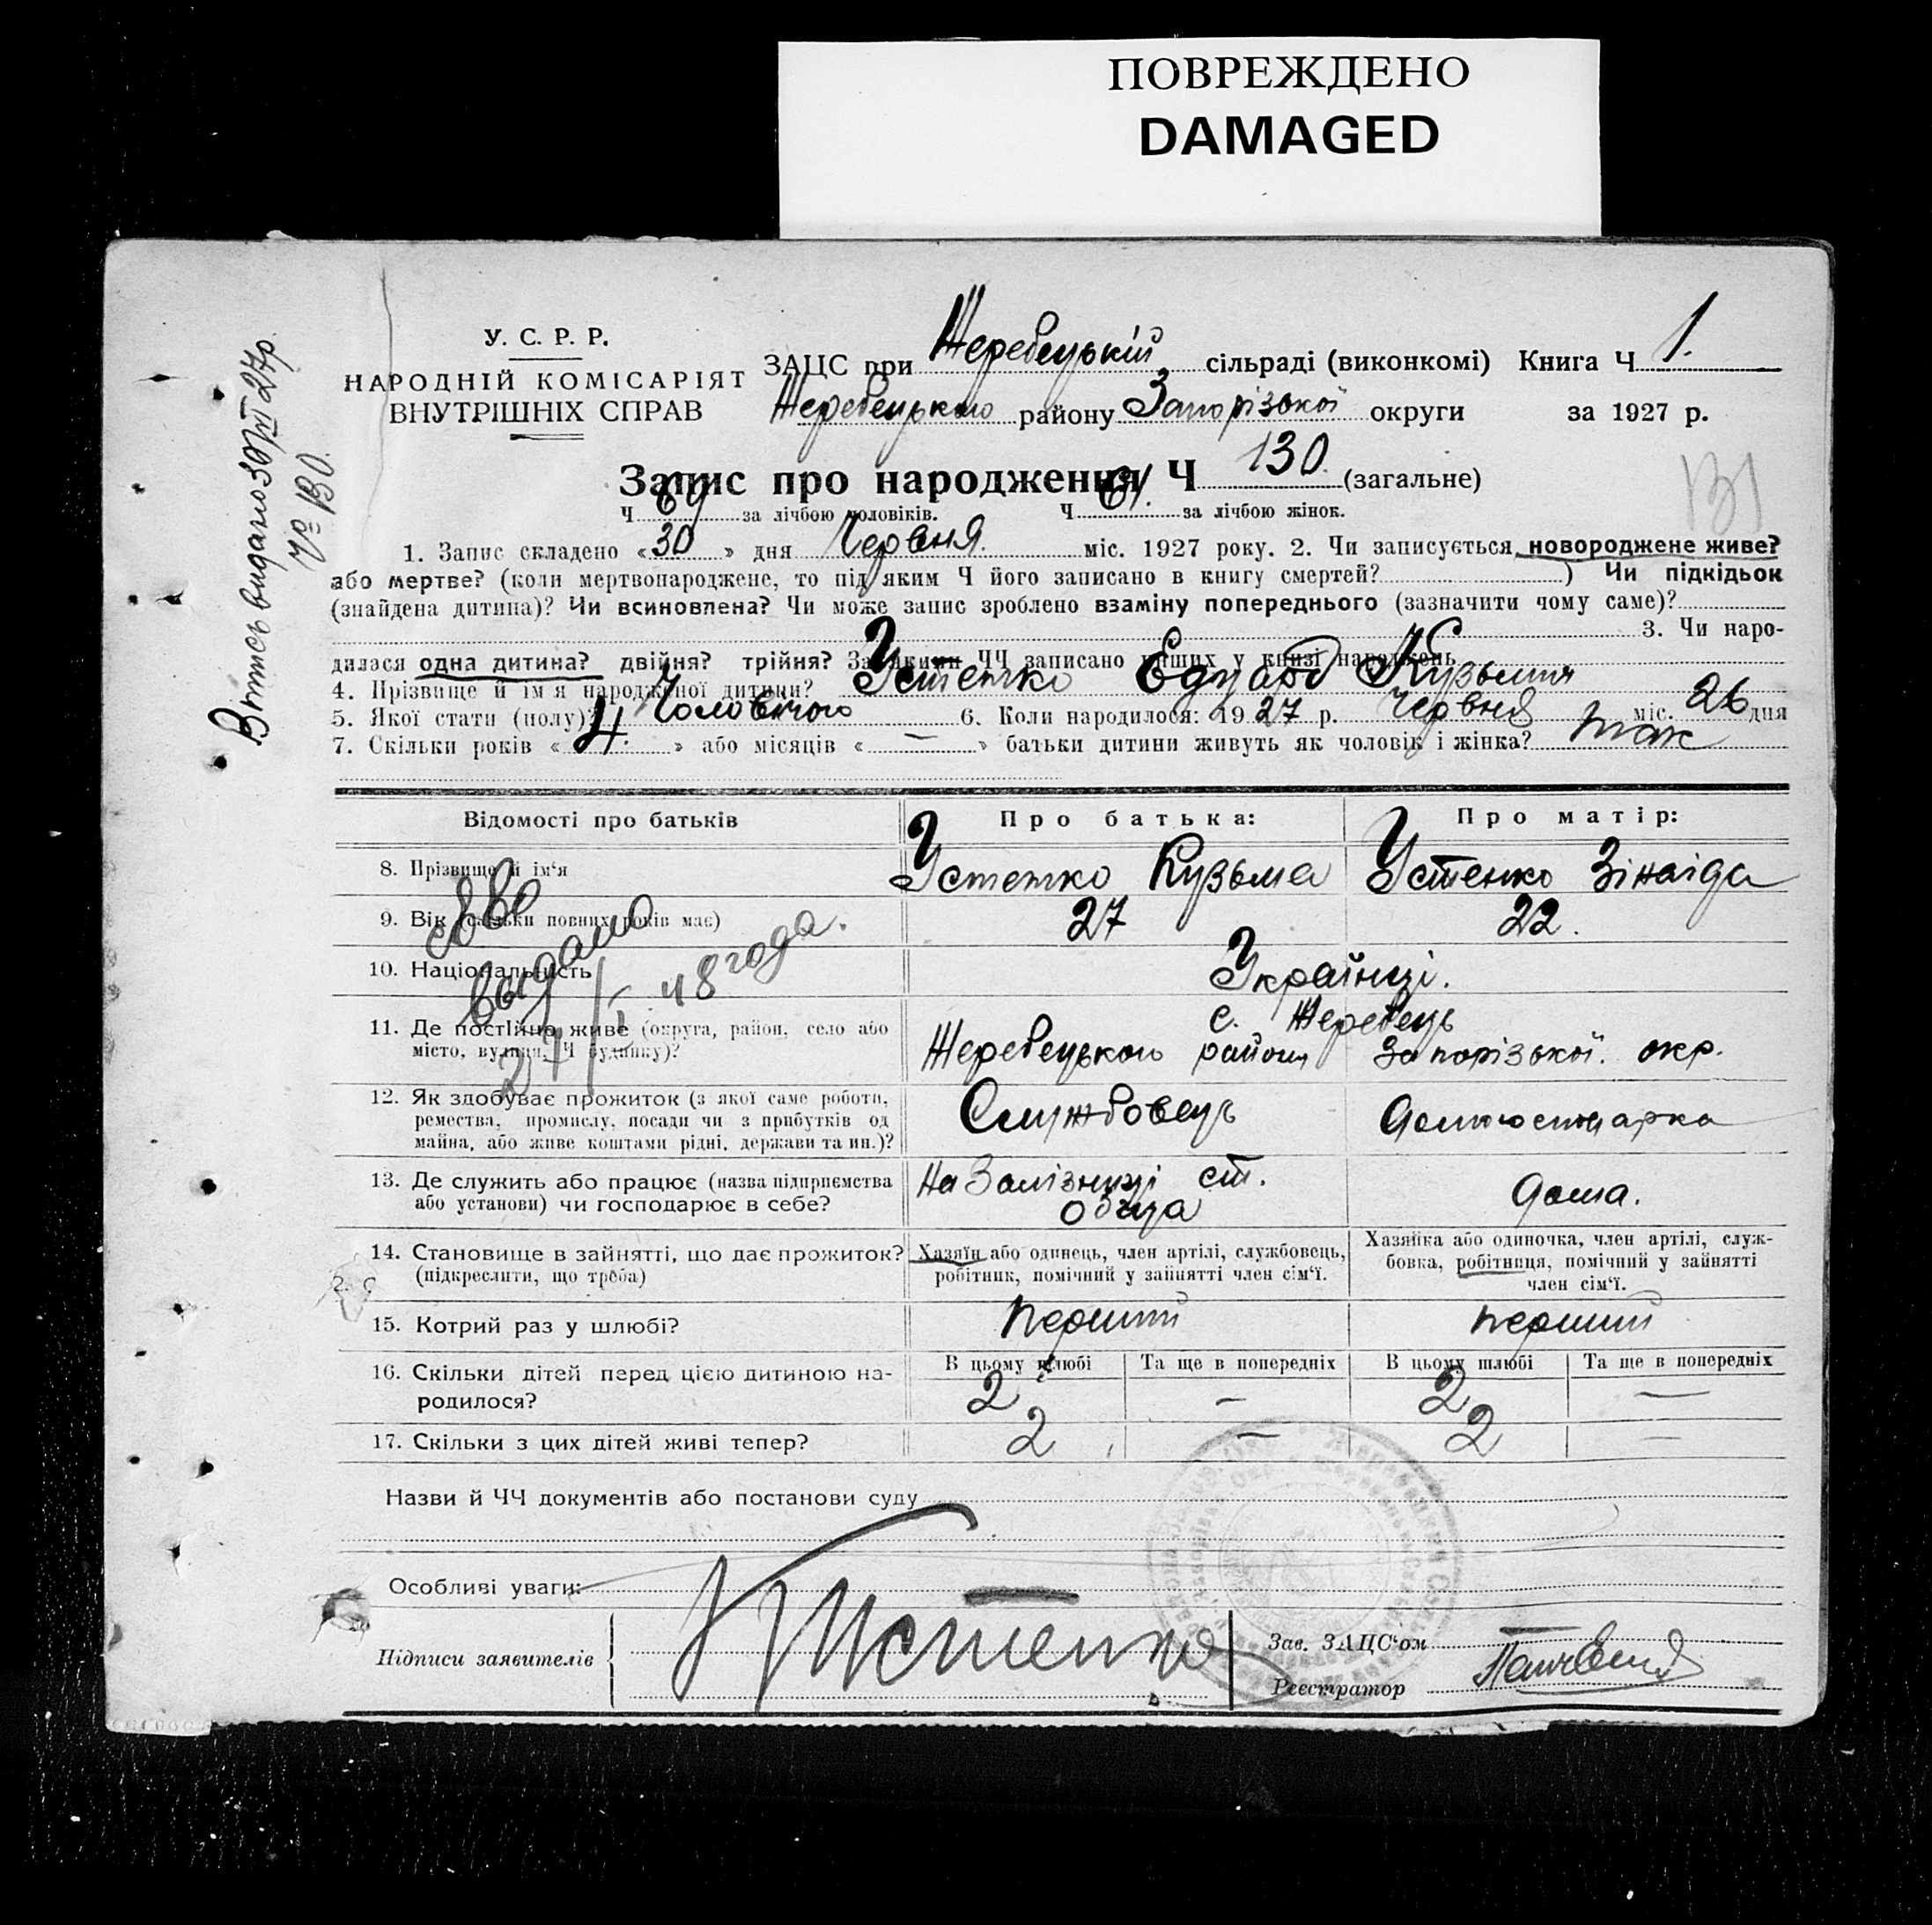 ПОВРЕЖДЕНО
DAMAGED
У. С. Р. Р.
НАРОДНІЙ КОМІСАРІЯТ
ВНУТРІШНІХ СПРАВ
ЗАЦС при Жеребецькій сільраді (виконкомі) Книга Ч 1.
Жеребецького району Запорізької округи за 1927 р.
Запис про народження Ч 130 (загальне)
131
Ч 69 за лічбою чоловіків. Ч 61. за лічбою жінок.
1. Запис складено «30» дня Червня міс. 1927 року. 2. Чи записується новороджене живе?
або мертве? (коли мертвонароджене, то під яким Ч його записано в книгу смертей? ) Чи підкідьок
(знайдена дитина)? Чи всиновлена? Чи може запис зроблено взаміну попереднього (зазначити чому саме)?
3. Чи наро-
дилася одна дитина? двійня? трійня? За якими ЧЧ записано инших у книзі народжень
4. Прізвище й ім'я народженої дитини? Устенко Едуард Кузьмич
5. Якої стати (полу)? Чоловічого 6. Коли народилося: 1927 р. Червня міс. 26 дня
7. Скільки років «4.» або місяців « — » батьки дитини живуть як чоловік і жінка? так
Витпсь видано 30/VI 27р.
№ 130.
Відомості про батьків
Про батька:
Про матір:
8. Прізвище й ім'я
Устенко Кузьма
Устенко Зінаіда
9. Вік (скільки повних років має)
27
22.
10. Національність
Українці.
выдано
27/I 48 года.
11. Де постійно живе (округа, район, село або
місто, вулиця, Ч будинку)?
с. Жеребець
Жеребецького району Запорізької. окр.
12. Як здобуває прожиток (з якої саме роботи,
ремества, промислу, посади чи з прибутків од
майна, або живе коштами рідні, держави та ин.)?
Службовець
Домгосподарка
13. Де служить або працює (назва підприємства
або установи) чи господарює в себе?
На Залізниці ст.
дома.
14. Становище в зайнятті, що дає прожиток?
(підкреслити, що треба)
Хазяїн або одинець, член артілі, службовець,
робітник, помічний у зайнятті член сім'ї.
Хазяйка або одиночка, член артілі, служ-
бовка, робітниця, помічний у зайнятті
член сім'ї.
15. Котрий раз у шлюбі?
перший
перший
16. Скільки дітей перед цією дитиною на-
родилося?
В цьому шлюбі
Та ще в попередніх
В цьому шлюбі
Та ще в попередніх
2 — 2 —
17. Скільки з цих дітей живі тепер?
2 — 2 —
Назви й ЧЧ документів або постанови суду
Особливі уваги:
Підписи заявителів
Устенко
Зав. ЗАЦС'ом
Реєстратор